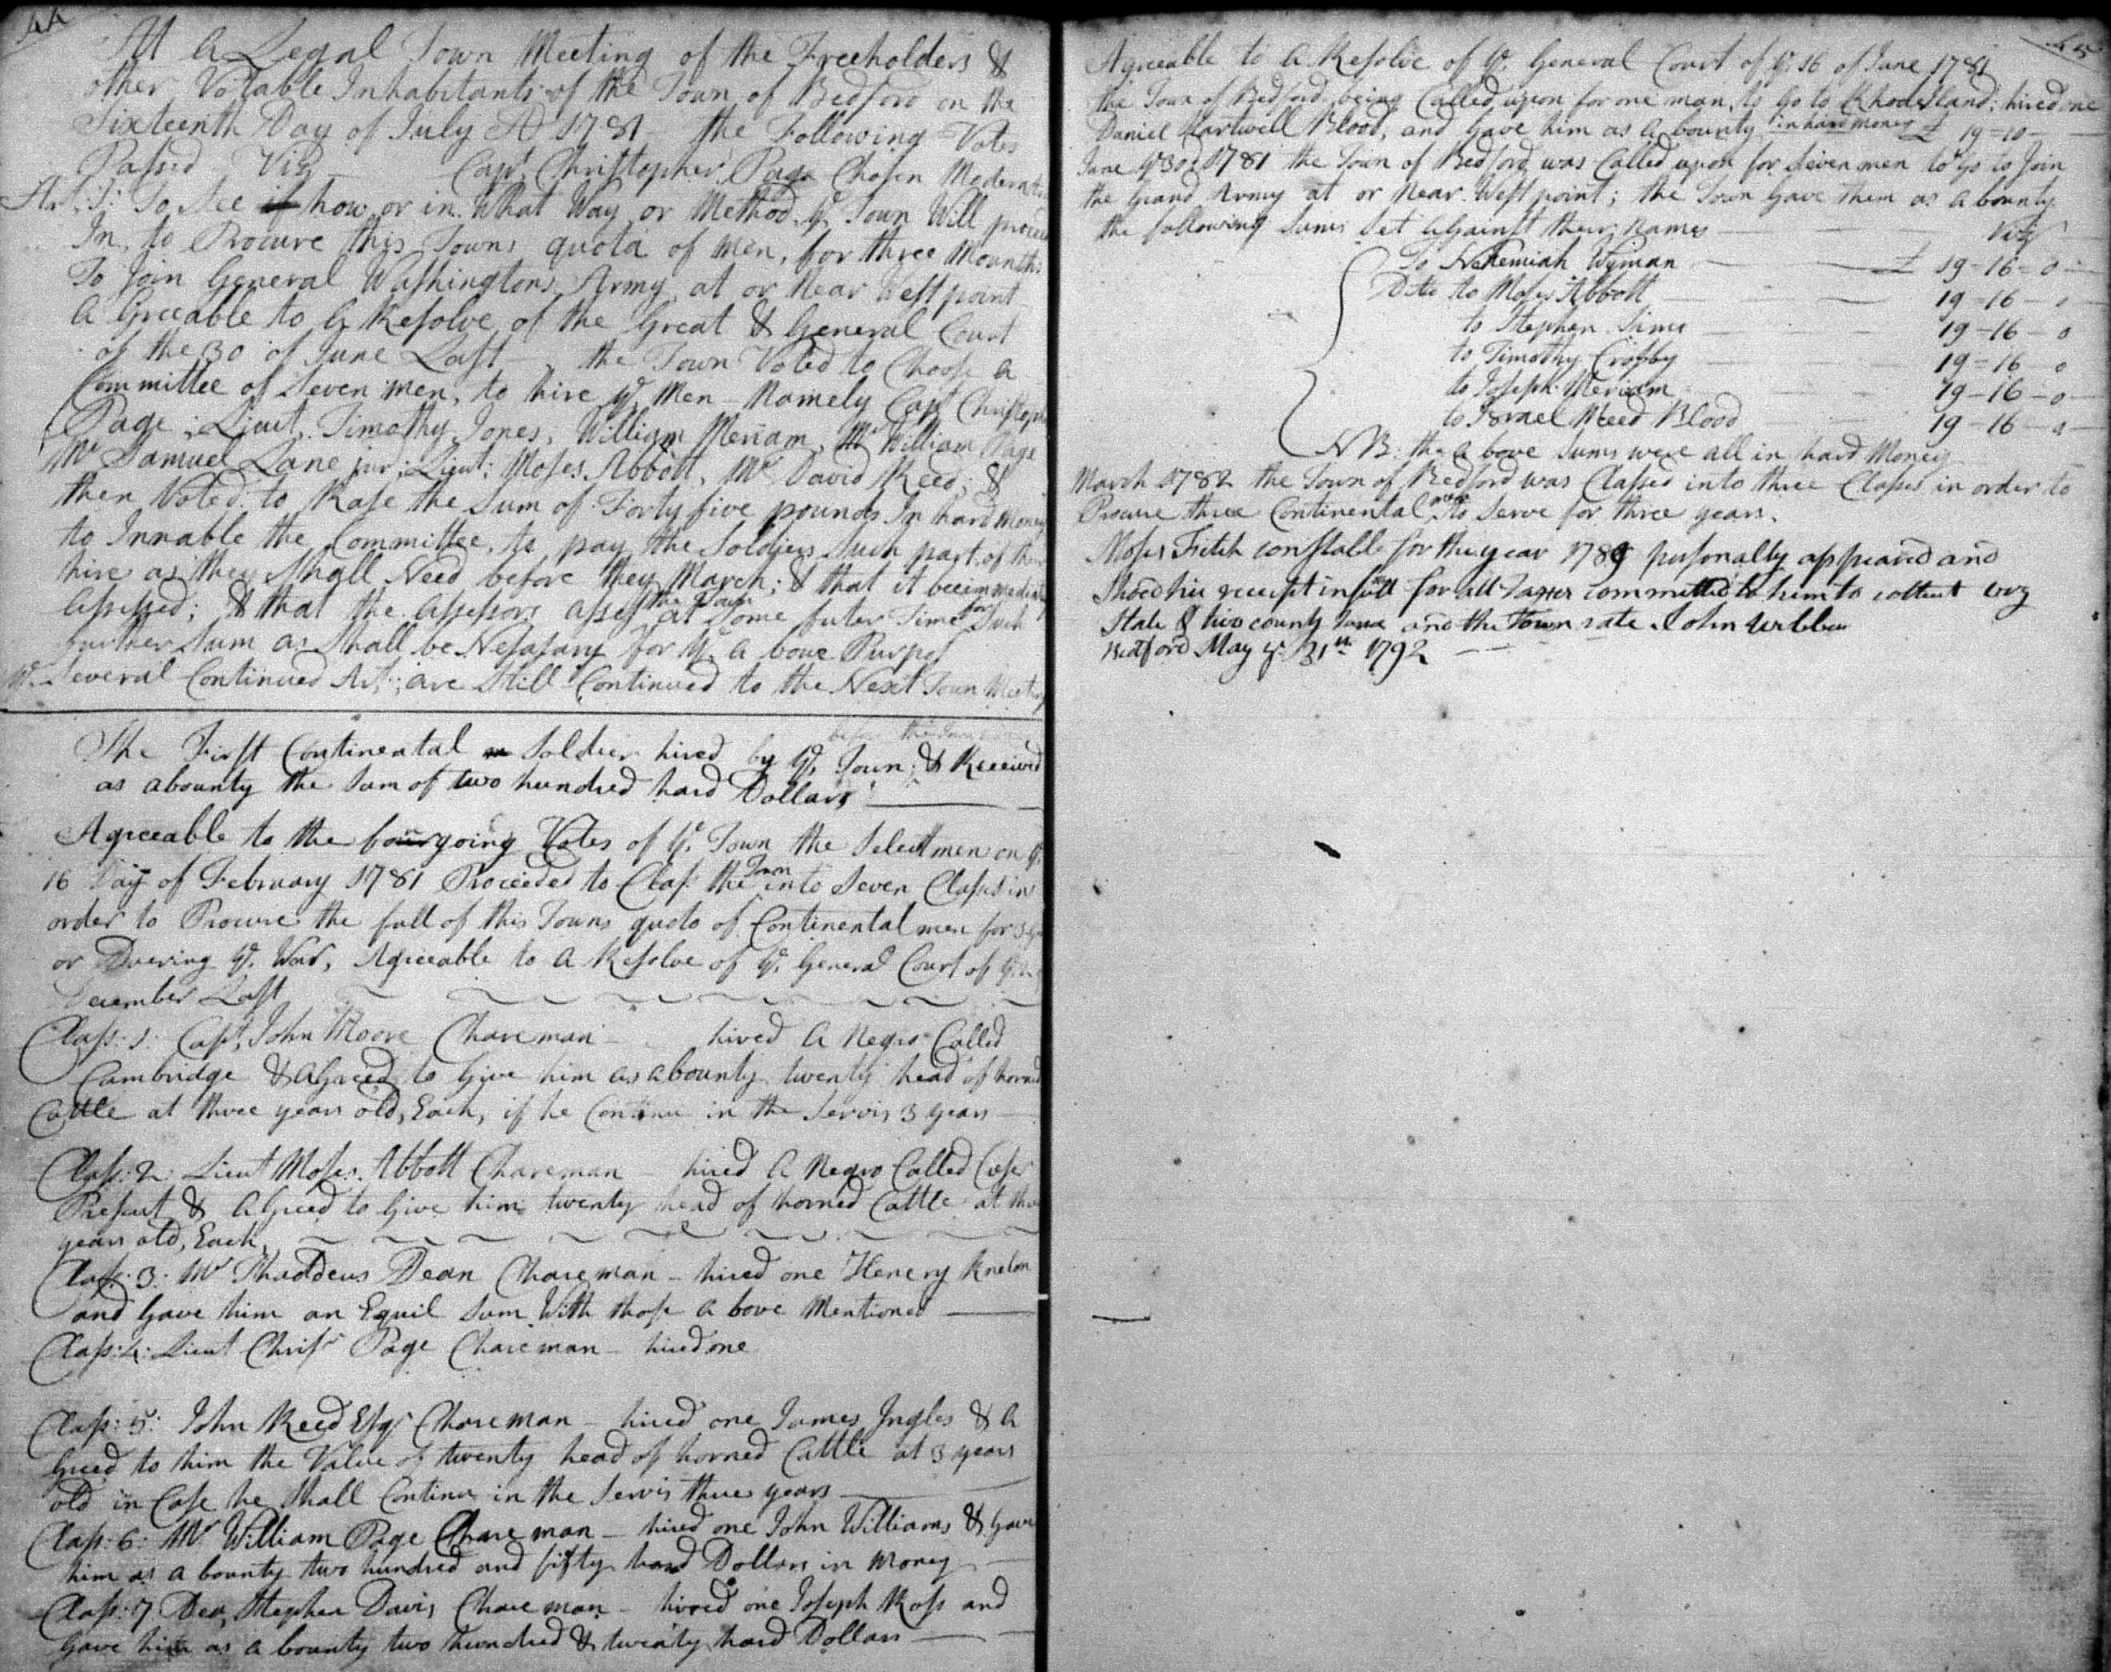 44
At A Legal Town Meeting of the Freeholders &
other Votable Inhabitants of the Town of Bedford on the
Sixteenth Day of July AD 1781 the Following Votes
Passed Viz Capt. Christopher Page Chosen Moderat
Art. 1: To See if how or in What Way or Method ye Town Will
In, to Procure this Towns quota of men, for three Mounths
To Join General Washingtons Army at or Near West point
A Greeable to A Resolve of the Great & General Court
of the 30 of June Last the Town Voted to Choose A
Committee of Seven men, to hire ye Men Namely Capt Christoph
Page, Lieut. Timothy Jones, William Meriam, Mr William Page
Mr Samuel Lane junr: Lieut: Moses Abbott, Mr David Reed; &
then Voted to Rase the Sum of Forty five pounds In hard Money
to Innable the Committee, to pay the Soldiers Such part of
hire as they Shall Need before they March; & that it be
assessed; & that the assessors assess the Town at Some futer Time for Such
further Sum as Shall be Nessasary for ye A bove Purpos
Several Continued Art: are Still Continued to the Next Town Meeting
The First Continental Soldier hired by ye Town; & Received
as a bounty the Sum of two hundred hard Dollars
Agreeable to the forgoing Votes of ye Town the Select men on ye
16 Day of February 1781 Proceeded to Class the Town into Seven Classes in
order to Procure the full of this Towns quoto of Continental men for 3
or Duering ye War, Agreeable to A Resolve of ye General Court of
December Last
Class: 1: Capt. John Moore Chareman hired A Negro Called
Cambridge & Agreed to Give him as a bounty twenty head of horned
Cattle at three years old, Each, if he Continu in the Servis 3 years
Class: 2: Lieut Moses Abbott Chareman hired A Negro Called Ceser
Prescut & Agreed to Give him twenty head of horned Cattle at
years old, Each,
Class: 3: Mr Thaddeus Dean Chareman - hired one Henery Knelon
and Gave him an Equil Sum With those A bove Mentioned
Class: 4: Lieut Chrisr Page Chareman - hired one
Class: 5: John Reed Esqr Chareman - hired one James Ingles & A
Greed to him the Value of twenty head of horned Cattle at 3 years
old in Case he Shall Continu in the Servis three years
Class: 6: Mr William Page Chareman - hired one John Williams & Gave
him as a bounty two hundred and fifty hard Dollars in Money
Class: 7 Dea. Stephen Davis Chareman - hired one Joseph Ross and
Gave him as a bounty two hundred & twenty hard Dollars
Agreeable to A Resolve of ye General Court of ye 16 of June 1781
the Town of Bedford being Called upon for one man, to Go to Rhode Island: hired one
Daniel Hartwell Blood, and Gave him as a bounty in hard money £ 19=10
June ye 30: 1781 the Town of Bedford was Called upon for Seven men to go to Join
the Grand Army at or Near West point; the Town Gave them as A bounty
the following Sums Set Against their Names Viz
To Nehemiah Wyman £ 19-16-0
Ditto to Moses Abbott 19-16-0
to Stephen Sims 19-16-0
to Timothy Crosby 19=16-0
to Joseph Meriam 19-16-0
to Israel Meed Blood 19-16-0
NB: the A bove Sums were all in hard Money
March 1782 the Town of Bedford was Classed into three Classes in order to
Procure three Continental men to Serve for three years.
Moses Fitch constable for the year 1789 personally appeared and
Shoed his receipt in full for all Taxes committed to him to collect
State & two county Taxes and the Town rate John Webber
Bedford May ye 31st 1792